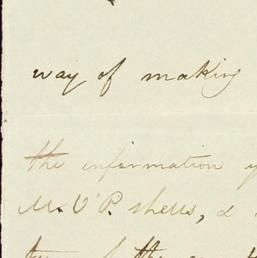 way of making
the information y
M. V P. shells, &
the